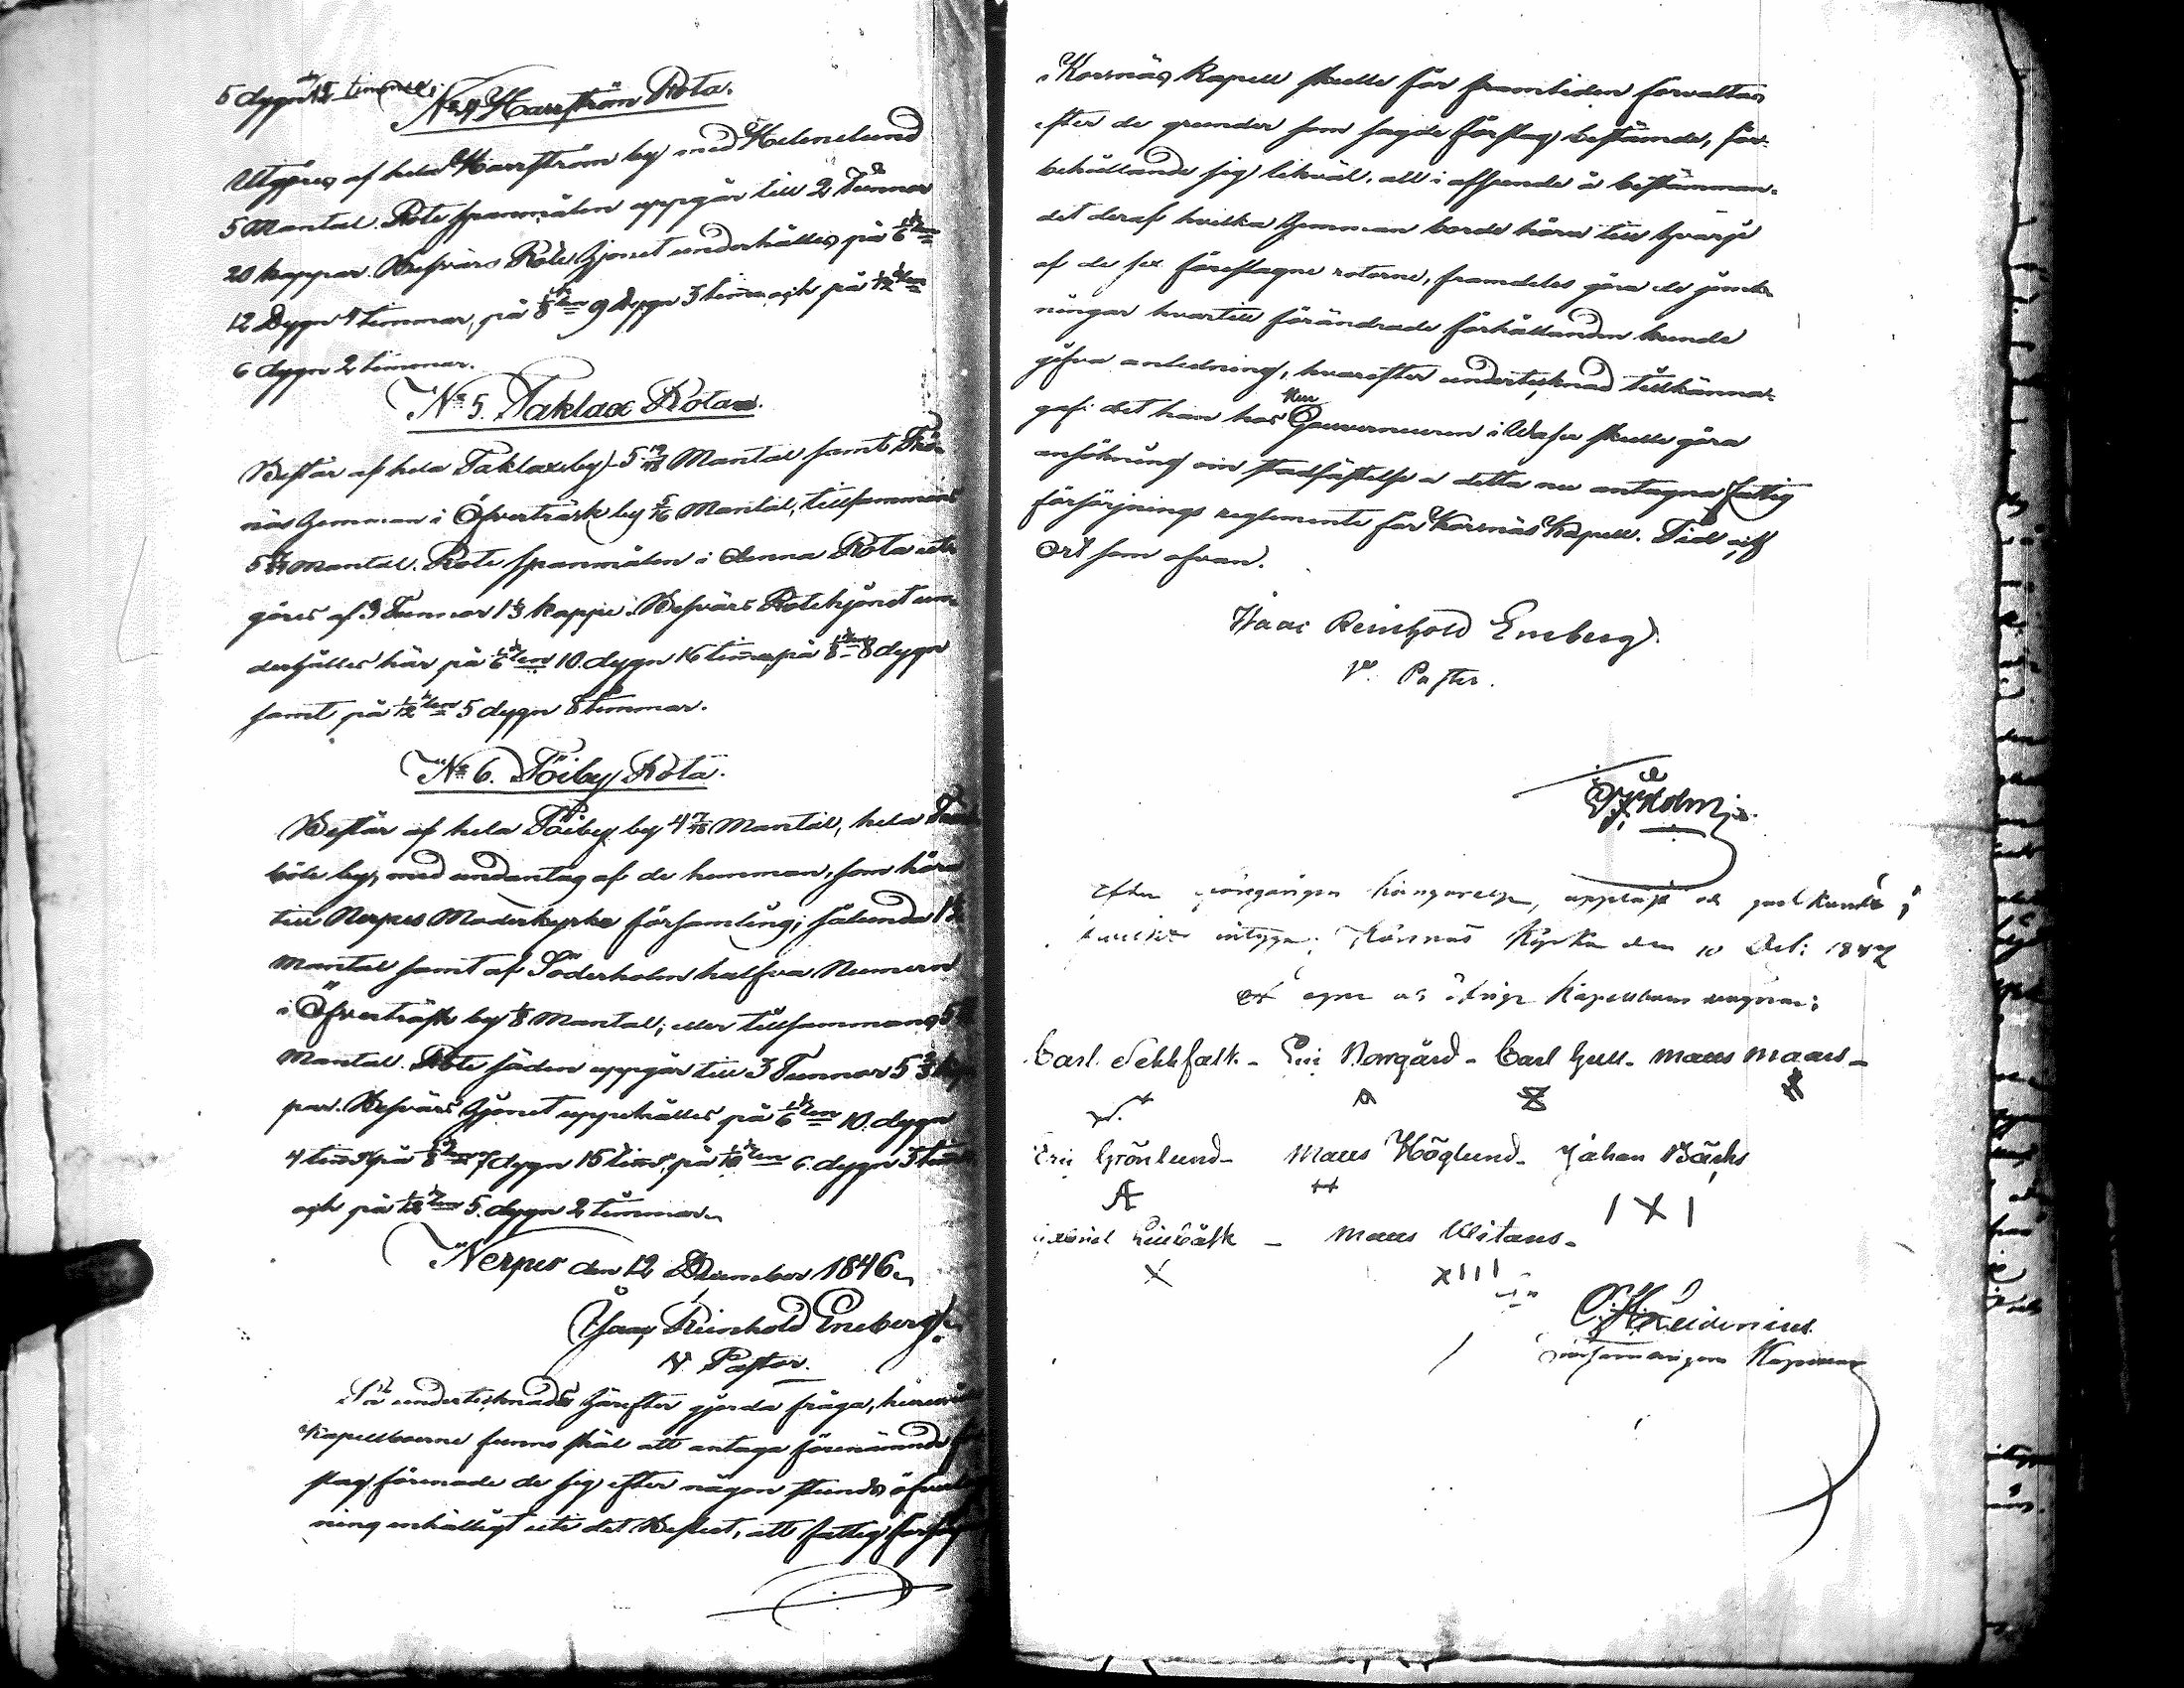 5 dygn 15 timmar.
N:o 4 Harrström Rota.
Utgöres af hela Harrström by med Helenelund
5 Mantal. Rote spanmålen uppgår till 2 Tunnor
20 kappar. Besvärs Rote Hjonet underhålles på 1/6 den
12 Dygn 4 timmar, på 1/8 den 9 dygn 3 tim: och på 1/12 den
6 dygn 2 timmar.
N:o 5. Taklax Rota.
Består af hela Taklax by 5 Mantal samt
näs hemman i Öfverträsk by 5/16 Mantal, tillsammans
Mantal. Rote spanmålen i denna Rota ut-
göres af 3 Tunnor 1 1/3 kappe. Besvärs Rotehjonet un-
derhålles här på 1/6 den 10. dygn 16 tim: på 1/8 den 8 dygn
samt på 1/12 den 5 dygn 8 timmar.
N:o 6. Töiby Rota.
Består af hela Töiby by Mantal, hela
böle by, med undantag af de hemman, som höra
till Nerpes Moderkyrko församling; sålunda
Mantal samt af Söderholm halfva Numern
i Öfverträsk by 1/8 Mantal; eller tillsammans
Mantal. Rote säden uppgår till 3 Tunnor 5 2/3 kap-
par. Besvärs Hjonet uppehålles på 1/6 den 10. dygn
4 tim: på 1/8 den 7 dygn 15 tim: på 1/10 den 6. dygn 3 tim:
och på 1/12 den 5. dygn 2 timmar.
Nerpes den 12 December 1846.
Isaac Reinhold Eneberg.
V. Pastor.
På undertecknads härefter gjorda fråga, huruvida
Kapellboerne funno skäl att antaga förenämnde för-
slag förenade de sig efter någon stunds öfverlägg-
ning enhälligt uti det Beslut, att fattig försörj
i Korsnäs Kapell skulle för framtiden förvaltas
efter de grunder som sagde förslag bestämde, för-
behållande sig likväl, att i afseende å bestämman-
det deraf hvilka hemman borde höra till hvarje
af de sex föreslagne rotarne, framdeles göra de jemk-
ningar hvartill förändrade förhållanden kunde
gifva anledning, hvarefter undertecknad tillkänna-
gaf: det han hos Herr Gouverneuren i Wasa skulle göra
ansökning om stadfästelse å detta nu antagna fattig
försörjnings reglemente för Korsnäs Kapell. Tid och
Ort som ofvan.
Isaac Reinhold Eneberg.
V. Pastor.
Holm
Efter föregången kungörelse, uppläst och godkändt
intyga; Korsnäs Kyrka den 10 Oct: 1847
egne och öfrige Kapellboers vägnar:
Carl - Eric Norrgård - Carl Gull - Maus Maars -
Eric Grönlund - Maus Höglund - Johan Bäcks
A H I X I
- Maus Witans -
X XIII